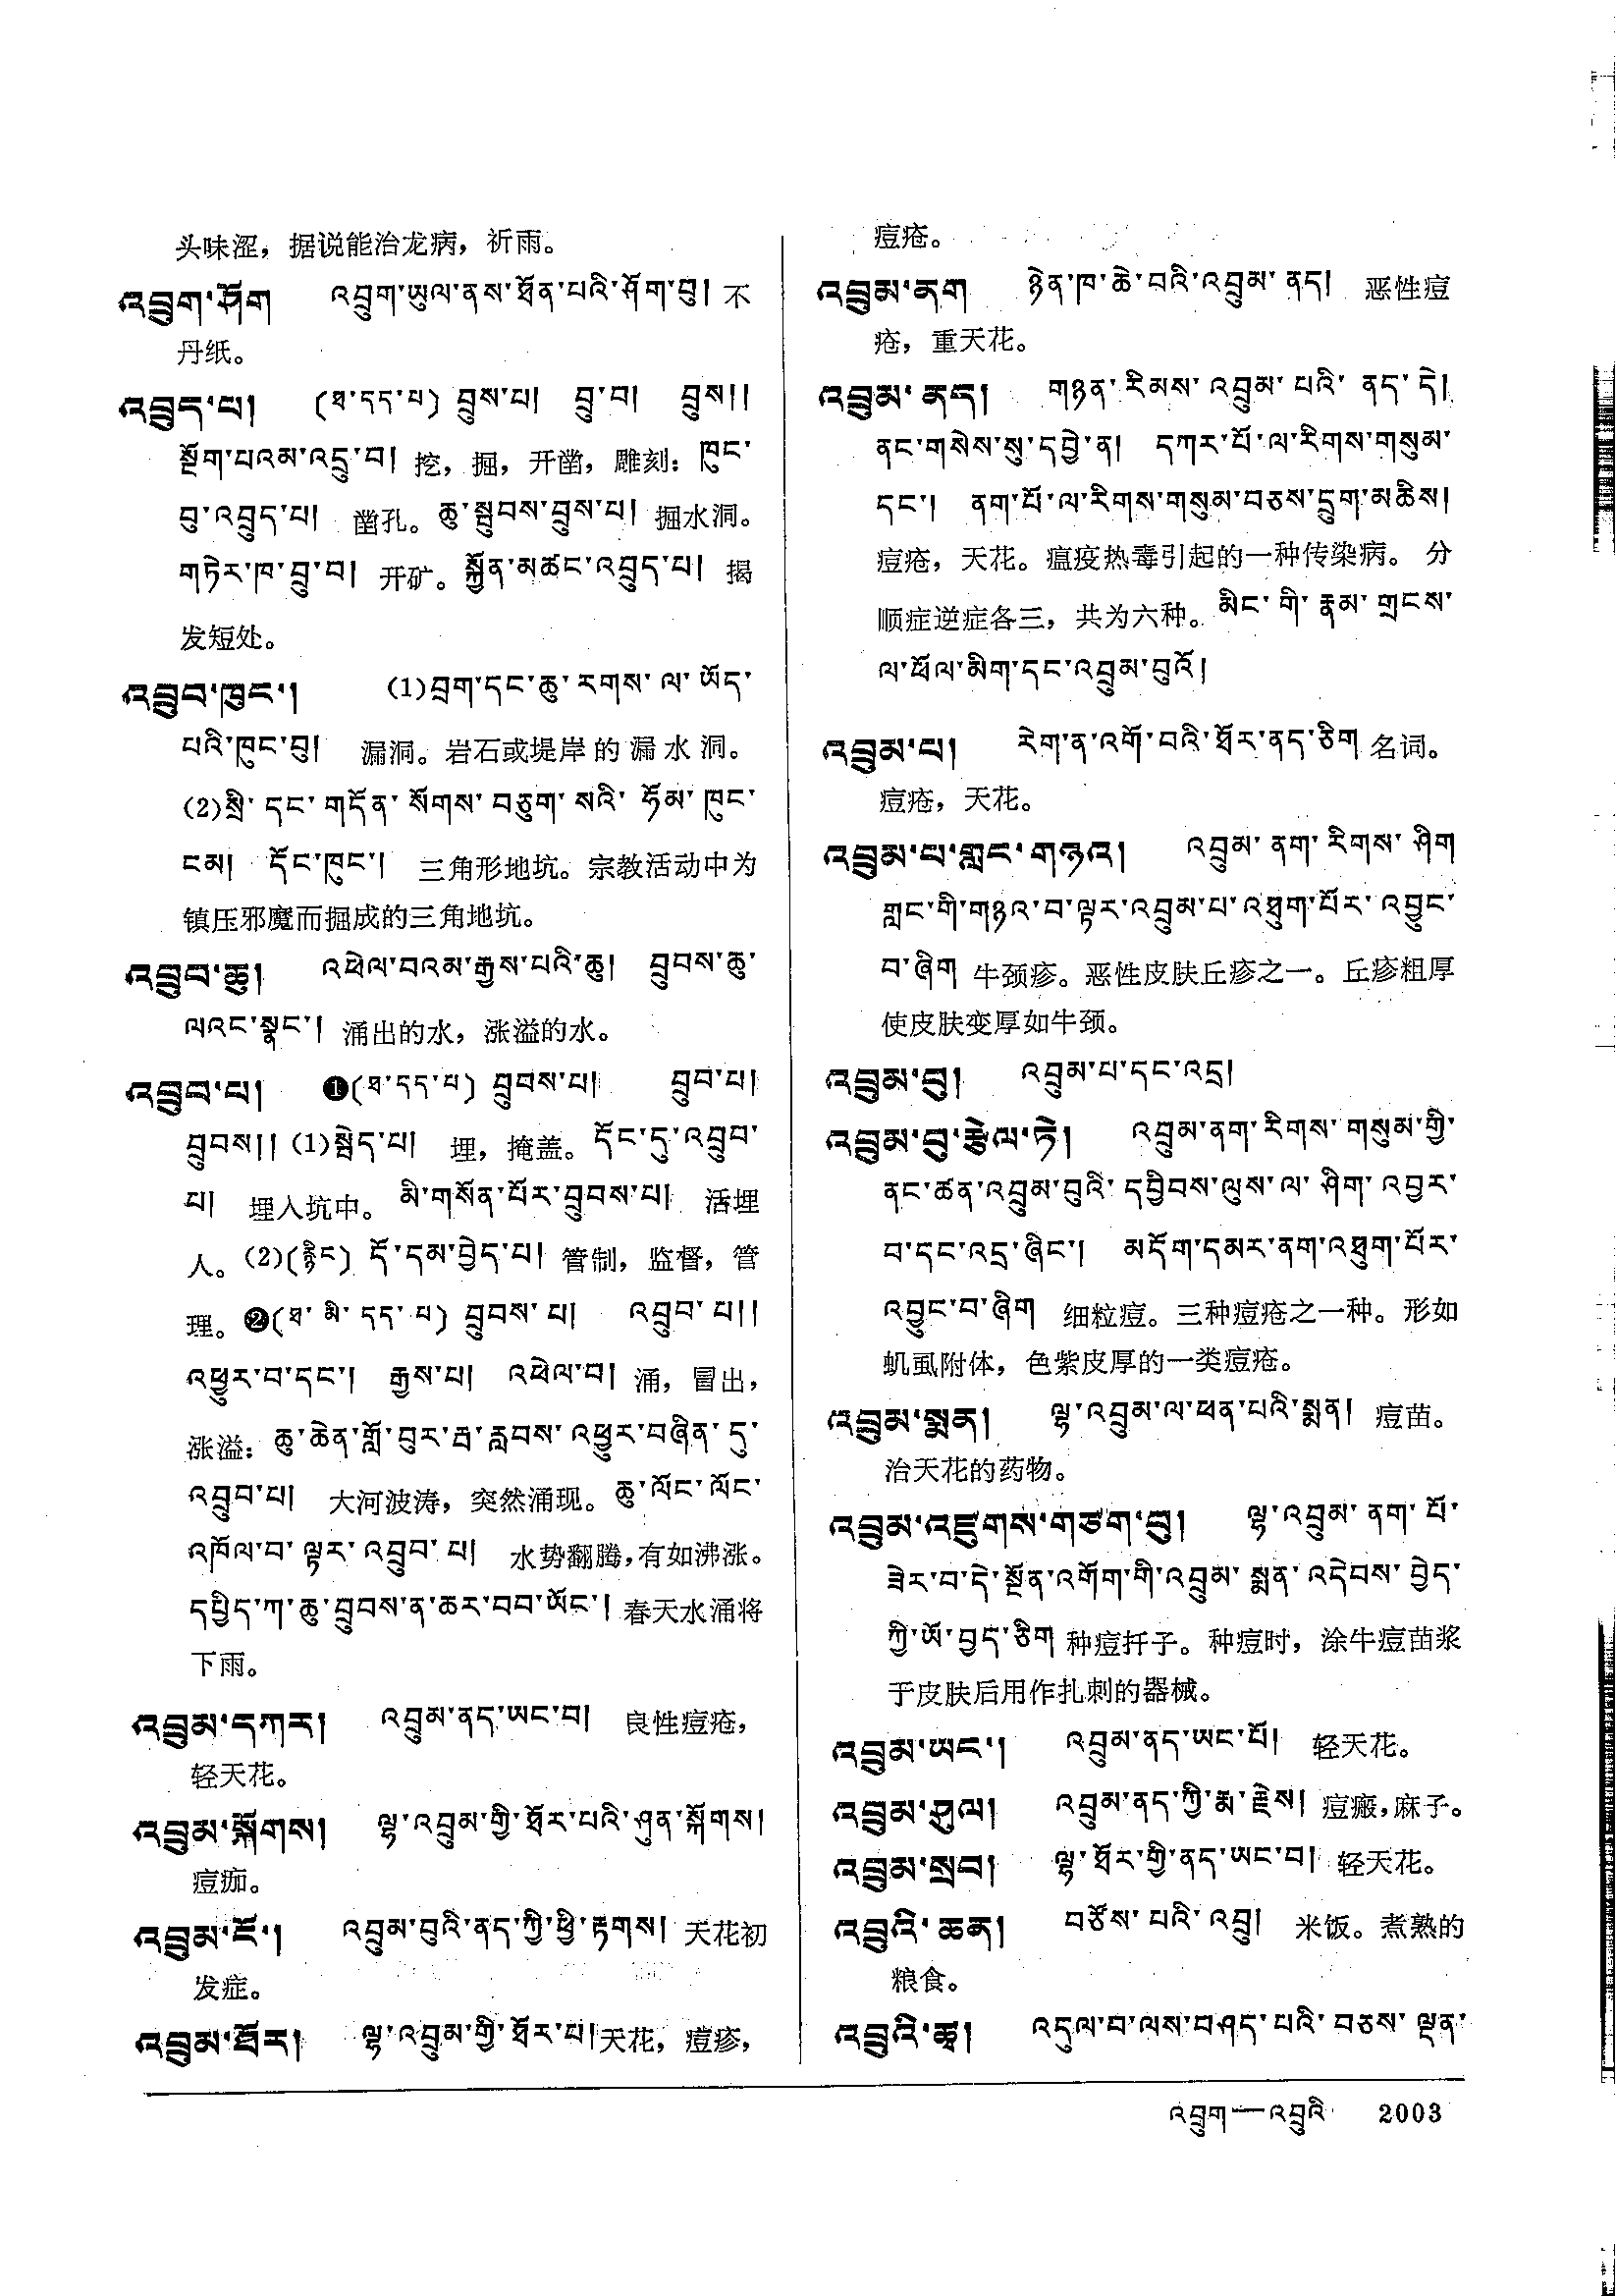 头味涩，据说能治龙病，祈雨。
འབྲུག་ཤོག འབྲུག་ཡུལ་ནས་ཐོན་པའི་ཤོག་བུ། 不
丹纸。
འབྲུད་པ། (ཐ་དད་པ) བྲུས་པ། བྲུ་བ། བྲུས།།
སྔོག་པའམ་འདྲུ་བ། 挖，掘，开凿，雕刻：ཁུང་
བུ་འབྲུད་པ། 凿孔。ཆུ་སྦུབས་བྲུས་པ། 掘水洞。
གཏེར་ཁ་བྲུ་བ། 开矿。སྐྱོན་མཚང་འབྲུད་པ། 揭
发短处。
འབྲུབ་ཁུང་། (1)བྲག་དང་ཆུ་རགས་ལ་ཡོད་
པའི་ཁུང་བུ། 漏洞。岩石或堤岸的漏水洞。
(2)སྲི་དང་གདོན་སོགས་བཅུག་སའི་ཧོམ་ཁུང་
ངམ། དོང་ཁུང་། 三角形地坑。宗教活动中为
镇压邪魔而掘成的三角地坑。
འབྲུབ་ཆུ། འཕེལ་བའམ་རྒྱས་པའི་ཆུ། བྲུབས་ཆུ་
ལའང་སྣང་། 涌出的水，涨溢的水。
འབྲུབ་པ། ❶(ཐ་དད་པ) བྲུབས་པ། བྲུབ་པ།
བྲུབས།། (1)སྦེད་པ། 埋，掩盖。དོང་དུ་འབྲུབ་
པ། 埋入坑中。མི་གསོན་པོར་བྲུབས་པ། 活埋
人。(2)(རྙིང) དོ་དམ་བྱེད་པ། 管制，监督，管
理。❷(ཐ་མི་དད་པ) བྲུབས་པ། འབྲུབ་པ།།
འཕྱུར་བ་དང་། རྒྱས་པ། འཕེལ་བ། 涌，冒出，
涨溢：ཆུ་ཆེན་གློ་བུར་རྦ་རླབས་འཕྱུར་བཞིན་དུ་
འབྲུབ་པ། 大河波涛，突然涌现。ཆུ་ལོང་ལོང་
འཁོལ་བ་ལྟར་འབྲུབ་པ། 水势翻腾，有如沸涨。
དཔྱིད་ཀ་ཆུ་བྲུབས་ན་ཆར་བབ་ཡོང་། 春天水涌将
下雨。
འབྲུམ་དཀར། འབྲུམ་ནད་ཡང་བ། 良性痘疮，
轻天花。
འབྲུམ་སྐོགས། ལྷ་འབྲུམ་གྱི་ཐོར་པའི་ཤུན་སྐོགས།
痘痂。
འབྲུམ་ངོ་། འབྲུམ་བུའི་ནད་ཀྱི་ཕྱི་རྟགས། 天花初
发症。
འབྲུམ་ཐོར། ལྷ་འབྲུམ་གྱི་ཐོར་པ། 天花，痘疹，
痘疮。
འབྲུམ་ནག ཉེན་ཁ་ཆེ་བའི་འབྲུམ་ནད། 恶性痘
疮，重天花。
འབྲུམ་ནད། གཉན་རིམས་འབྲུམ་པའི་ནད་དེ།
ནང་གསེས་སུ་དབྱེ་ན། དཀར་པོ་ལ་རིགས་གསུམ་
དང་། ནག་པོ་ལ་རིགས་གསུམ་བཅས་དྲུག་མཆིས།
痘疮，天花。瘟疫热毒引起的一种传染病。分
顺症逆症各三，共为六种。མིང་གི་རྣམ་གྲངས་
ལ་ཕོལ་མིག་དང་འབྲུམ་བུའོ།
འབྲུམ་པ། རེག་ན་འགོ་བའི་ཐོར་ནད་ཅིག 名词。
痘疮，天花。
འབྲུམ་པ་གླང་གཉའ། འབྲུམ་ནག་རིགས་ཤིག
གླང་གི་གཉའ་བ་ལྟར་འབྲུམ་པ་འཐུག་པོར་འབྱུང་
བ་ཞིག 牛颈疹。恶性皮肤丘疹之一。丘疹粗厚
使皮肤变厚如牛颈。
འབྲུམ་བུ། འབྲུམ་པ་དང་འདྲ།
འབྲུམ་བུ་རྩེལ་ཏེ། འབྲུམ་ནག་རིགས་གསུམ་གྱི་
ནང་ཚན་འབྲུམ་བུའི་དབྱིབས་ལུས་ལ་ཤིག་འབྱར་
བ་དང་འདྲ་ཞིང་། མདོག་དམར་ནག་འཐུག་པོར་
འབྱུང་བ་ཞིག 细粒痘。三种痘疮之一种。形如
虮虱附体，色紫皮厚的一类痘疮。
འབྲུམ་སྨན། ལྷ་འབྲུམ་ལ་ཕན་པའི་སྨན། 痘苗。
治天花的药物。
འབྲུམ་འཛུགས་གཙག་བུ། ལྷ་འབྲུམ་ནག་པོ་
ཟེར་བ་དེ་སྔོན་འགོག་གི་འབྲུམ་སྨན་འདེབས་བྱེད་
ཀྱི་ཡོ་བྱད་ཅིག 种痘扦子。种痘时，涂牛痘苗浆
于皮肤后用作扎刺的器械。
འབྲུམ་ཡང་། འབྲུམ་ནད་ཡང་པོ། 轻天花。
འབྲུམ་ཤུལ། འབྲུམ་ནད་ཀྱི་རྨ་རྗེས། 痘瘢，麻子。
འབྲུམ་སྲབ། ལྷ་ཐོར་གྱི་ནད་ཡང་བ། 轻天花。
འབྲུའི་ཆན། བཙོས་པའི་འབྲུ། 米饭。煮熟的
粮食。
འབྲུའི་ཚྭ། འདུལ་བ་ལས་བཤད་པའི་བཅས་ལྡན་
འབྲུག—འབྲུའི 2003